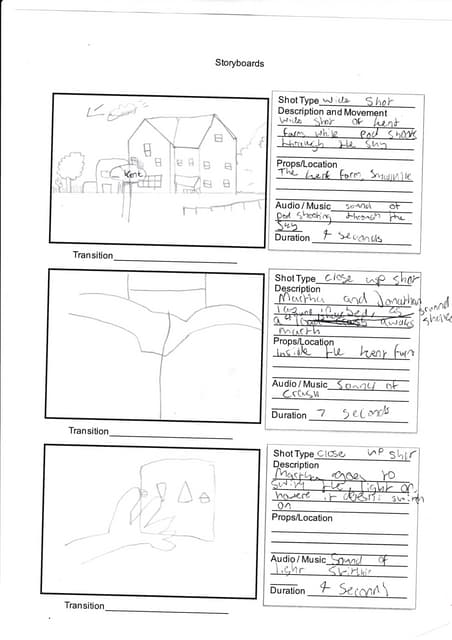 Storyboards
Shot Type wide shot
Description and Movement
wide shot of kent
farm while pod shoots
through the sky
Props/Location
The kent farm, Smallville
Audio / Music sound of
pod shooting through the
sky
Duration 4 seconds
Kent
Transition
Shot Type close up shot
Description
Martha and Jonathan
in bed, as ground
a shakes
Martha
Props/Location
Inside the kent farm
Audio / Music Sound of
crash
Duration 7 seconds
Transition
Shot Type close up shot
Description
Martha goes to
switch the light on,
however it doesn't switch
on
Props/Location
Audio / Music Sound of
light switch
Duration 4 seconds
Transition